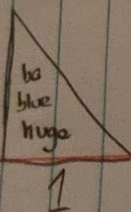 be
blue
huge
1